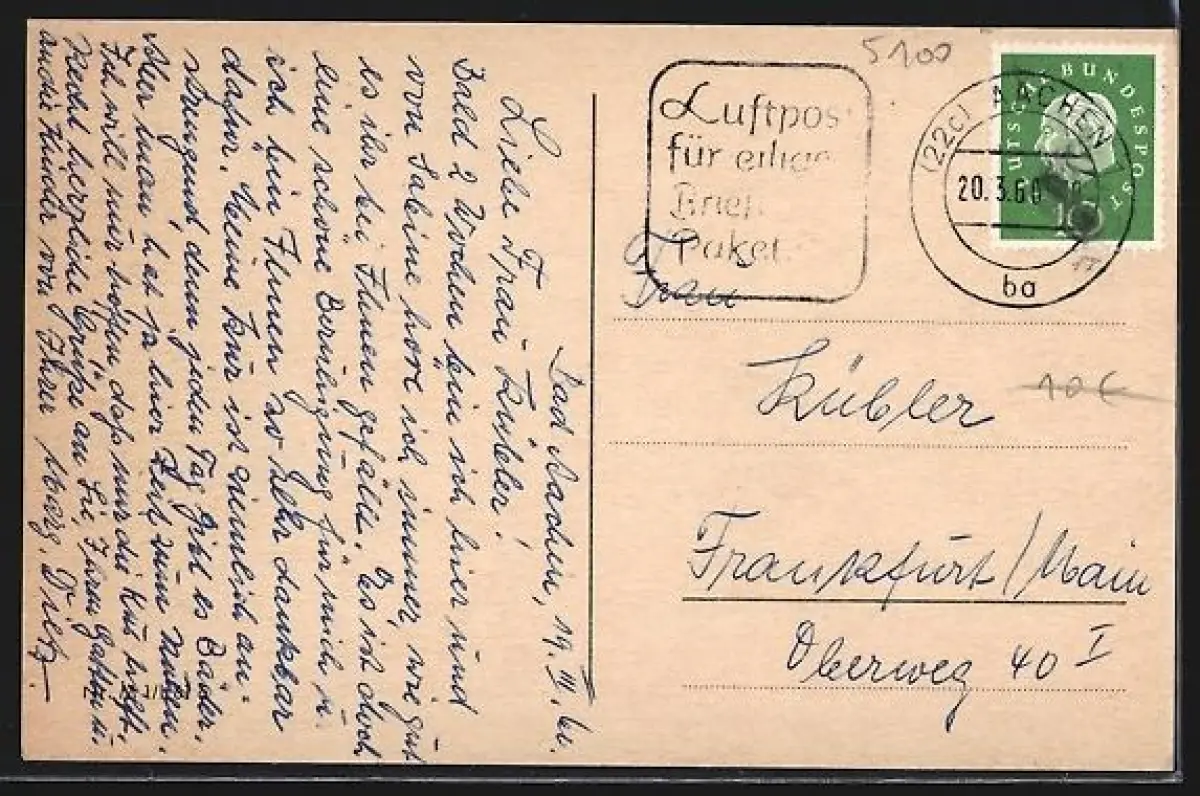 Bad Aachen, 19. III. 60.
Liebe Frau Kübler!
Bald 2 Wochen bin ich hier und
von Sabine höre ich immer, wie gut
es ihr bei Ihnen gefällt. Es ist doch
eine schöne Beruhigung für mich u.
ich bin Ihnen so sehr dankbar
dafür. Meine Kur ist ziemlich an-
strengend, denn jeden Tag gibt es Bäder.
Aber man hat ja hier Zeit zum Ruhen.
Ich will nur hoffen, daß nur die Kur hilft.
Recht herzliche Grüße an Sie, Ihren Gatten u.
an die Kinder von Ihrer Marg. Dietz.
5100
Luftpos
für eilige
Brief
Paket
(22c) AACHEN
20.3.60
ba
UTSCHE BUNDESPOST
10
Frau
Kübler
10 €
Frankfurt/Main
Oberweg 40 I